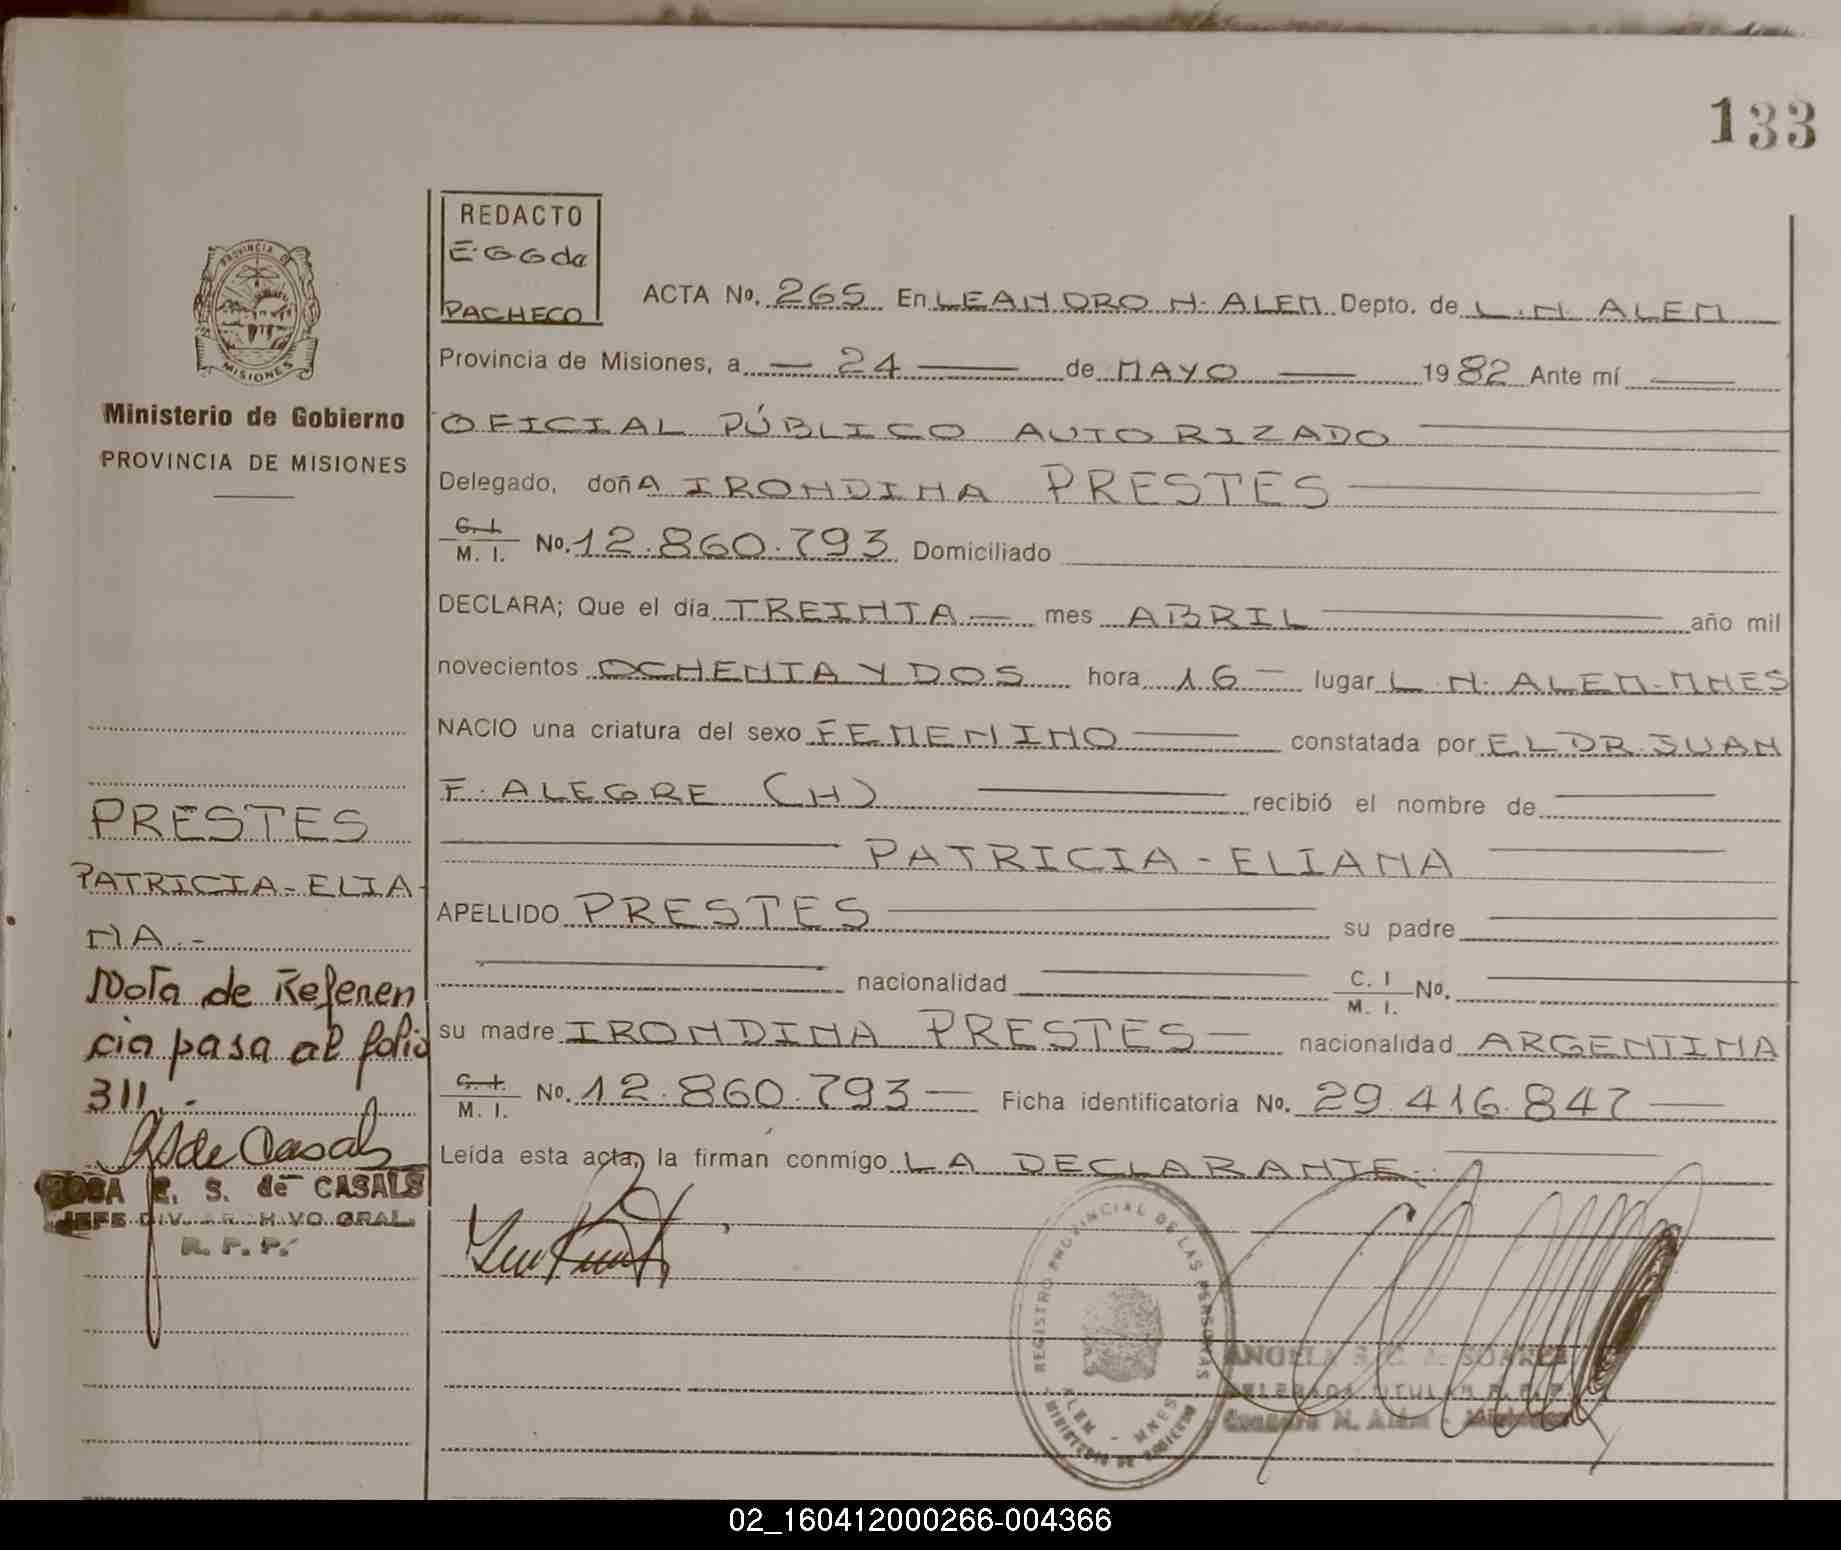 133
PROVINCIA DE
MISIONES
Ministerio de Gobierno
PROVINCIA DE MISIONES
REDACTO
E.GG de
PACHECO
ACTA No. 265 En LEANDRO N. ALEM Depto. de L.N. ALEM
Provincia de Misiones, a — 24 — de MAYO — 1982 Ante mí —
OFICIAL PÚBLICO AUTORIZADO —
Delegado, doñA IRONDINA PRESTES —
C. I.
M. I. No. 12.860.793 Domiciliado
DECLARA; Que el día TREINTA — mes ABRIL — año mil
novecientos OCHENTA Y DOS hora 16 — lugar L.N. ALEM-MNES
NACIO una criatura del sexo FEMENINO — constatada por EL DR. JUAN
F. ALEGRE (H) — recibió el nombre de —
— PATRICIA-ELIANA —
APELLIDO PRESTES — su padre —
— nacionalidad — C. I
M. I. No. —
su madre IRONDINA PRESTES — nacionalidad ARGENTINA
C. I.
M. I. No. 12.860.793 — Ficha identificatoria No. 29.416.847 —
Leída esta acta, la firman conmigo LA DECLARANTE. —
PRESTES
PATRICIA-ELIA-
NA.-
Nota de Referen
cia pasa al folio
311.-
RS de Casals
ROSA E. S. de CASALS
JEFE DIV. ARCHIVO GRAL.
R. P. P.
REGISTRO PROVINCIAL DE LAS PERSONAS
ALEM - MNES
MINISTERIO DE GOBIERNO
ANGELA S. C. de SUAREZ
DELEGADA TITULAR R. P. P.
Leandro N. Alem - Misiones
02_160412000266-004366